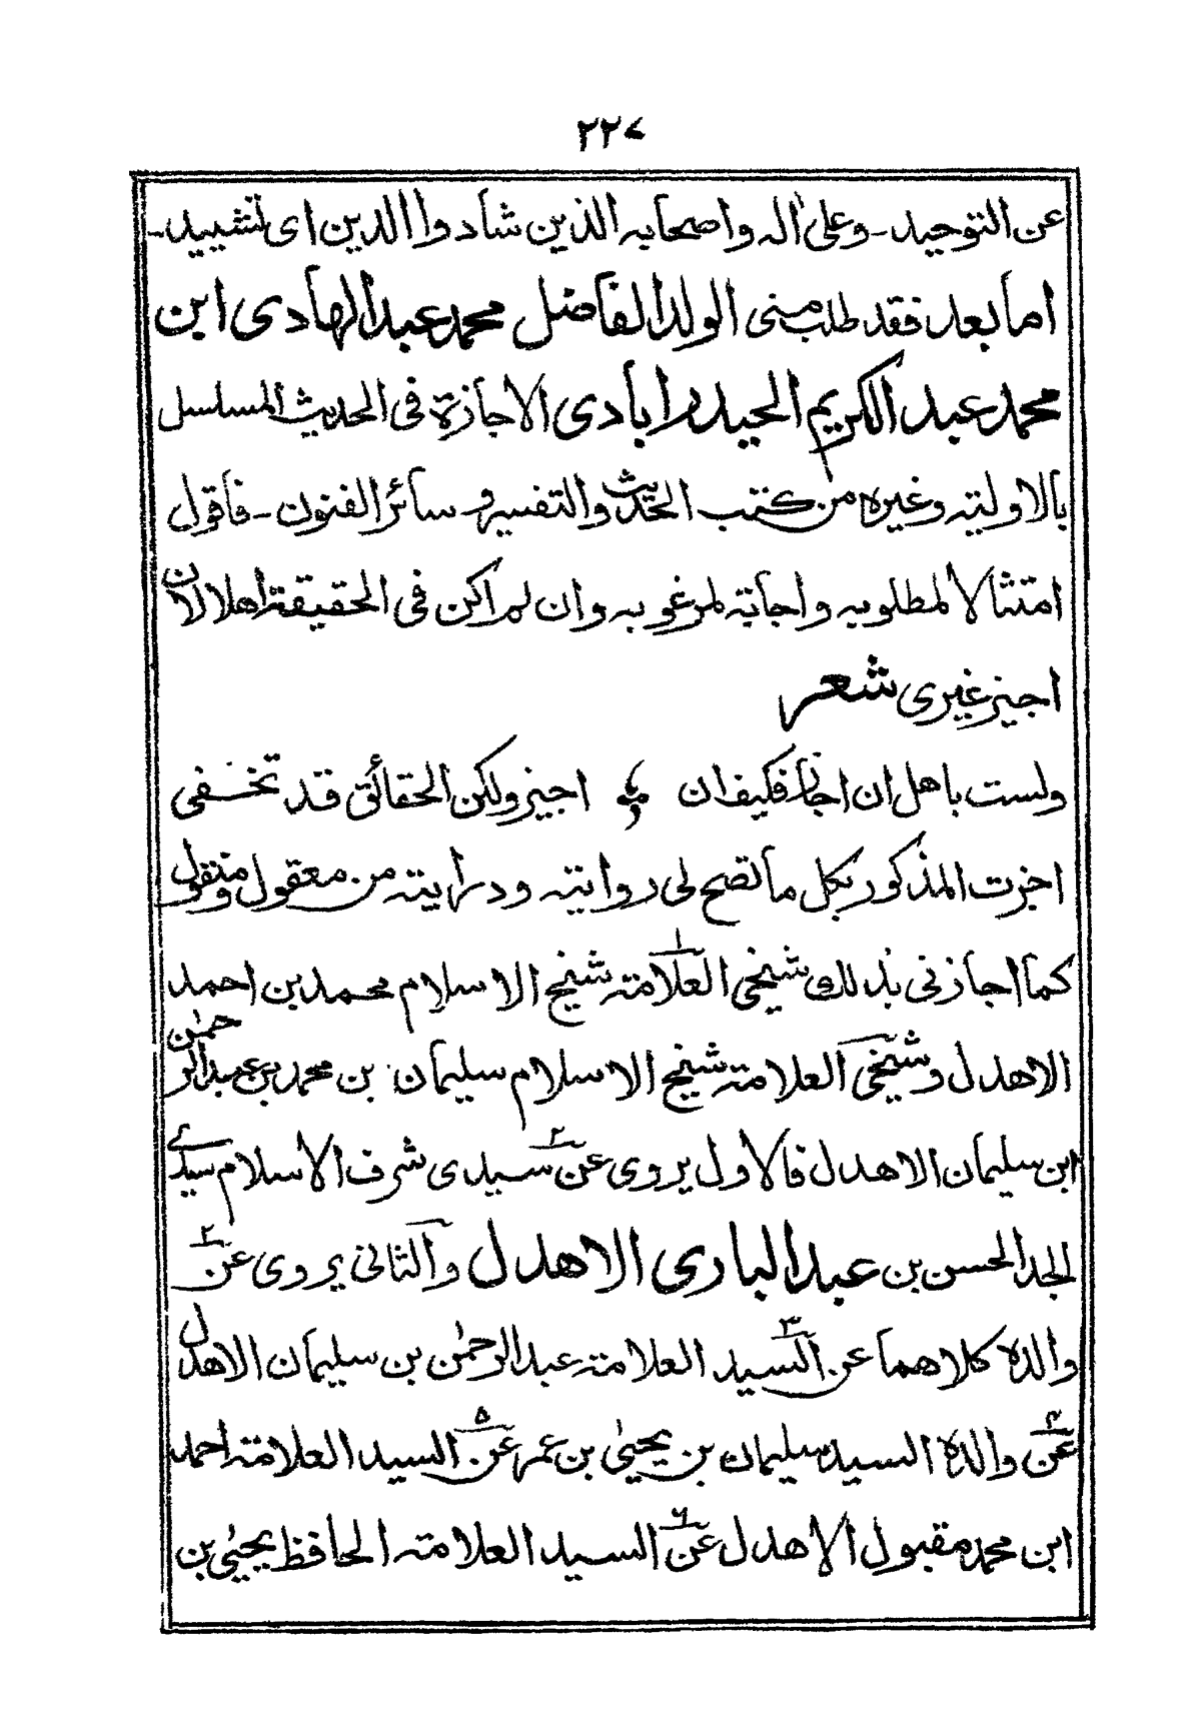 ۲۲۷
عن التوحيد ـ وعلىٰ اٰله واصحابه الذين شادوا الدين اى تشييد ـ
اما بعد فقد طلب منى الولد الفاضل محمد عبد الهادى ابن
محمد عبد الكريم الحيدرابادى الاجازة فى الحديث المسلسل
بالاولية وغيره من كتب الحديث والتفسير وسائر الفنون ـ فاقول
امتثالا لمطلوبه واجابة لمرغوبه وان لم اكن فى الحقيقة اهلا لان
اجيز غيرى شعر
ولست باهل ان اجاز فكيف ان ؞ اجيز ولكن الحقائق قد تخفى
اجزت المذكور بكل ما تصح لى روايته ودرايته من معقول ومنقول
كما اجازنى بذلك شيخى ١ العلامة شيخ الاسلام محمد بن احمد
الاهدل وشيخى العلامة شيخ الاسلام سليمان بن محمد بن عبد الرحمٰن
ابن سليمان الاهدل فالاول يروى عن ٢ سيدى شرف الاسلام سيدے
الجد الحسن بن عبد البارى الاهدل والثانى يروى عن ٢
والده كلاهما عن ٣ السيد العلامة عبد الرحمٰن بن سليمان الاهدل
عن ٤ والده السيد سليمان بن يحيىٰ بن عمر عن ٥ السيد العلامة احمد
ابن محمد مقبول الاهدل عن ٦ السيد العلامة الحافظ يحيىٰ بن